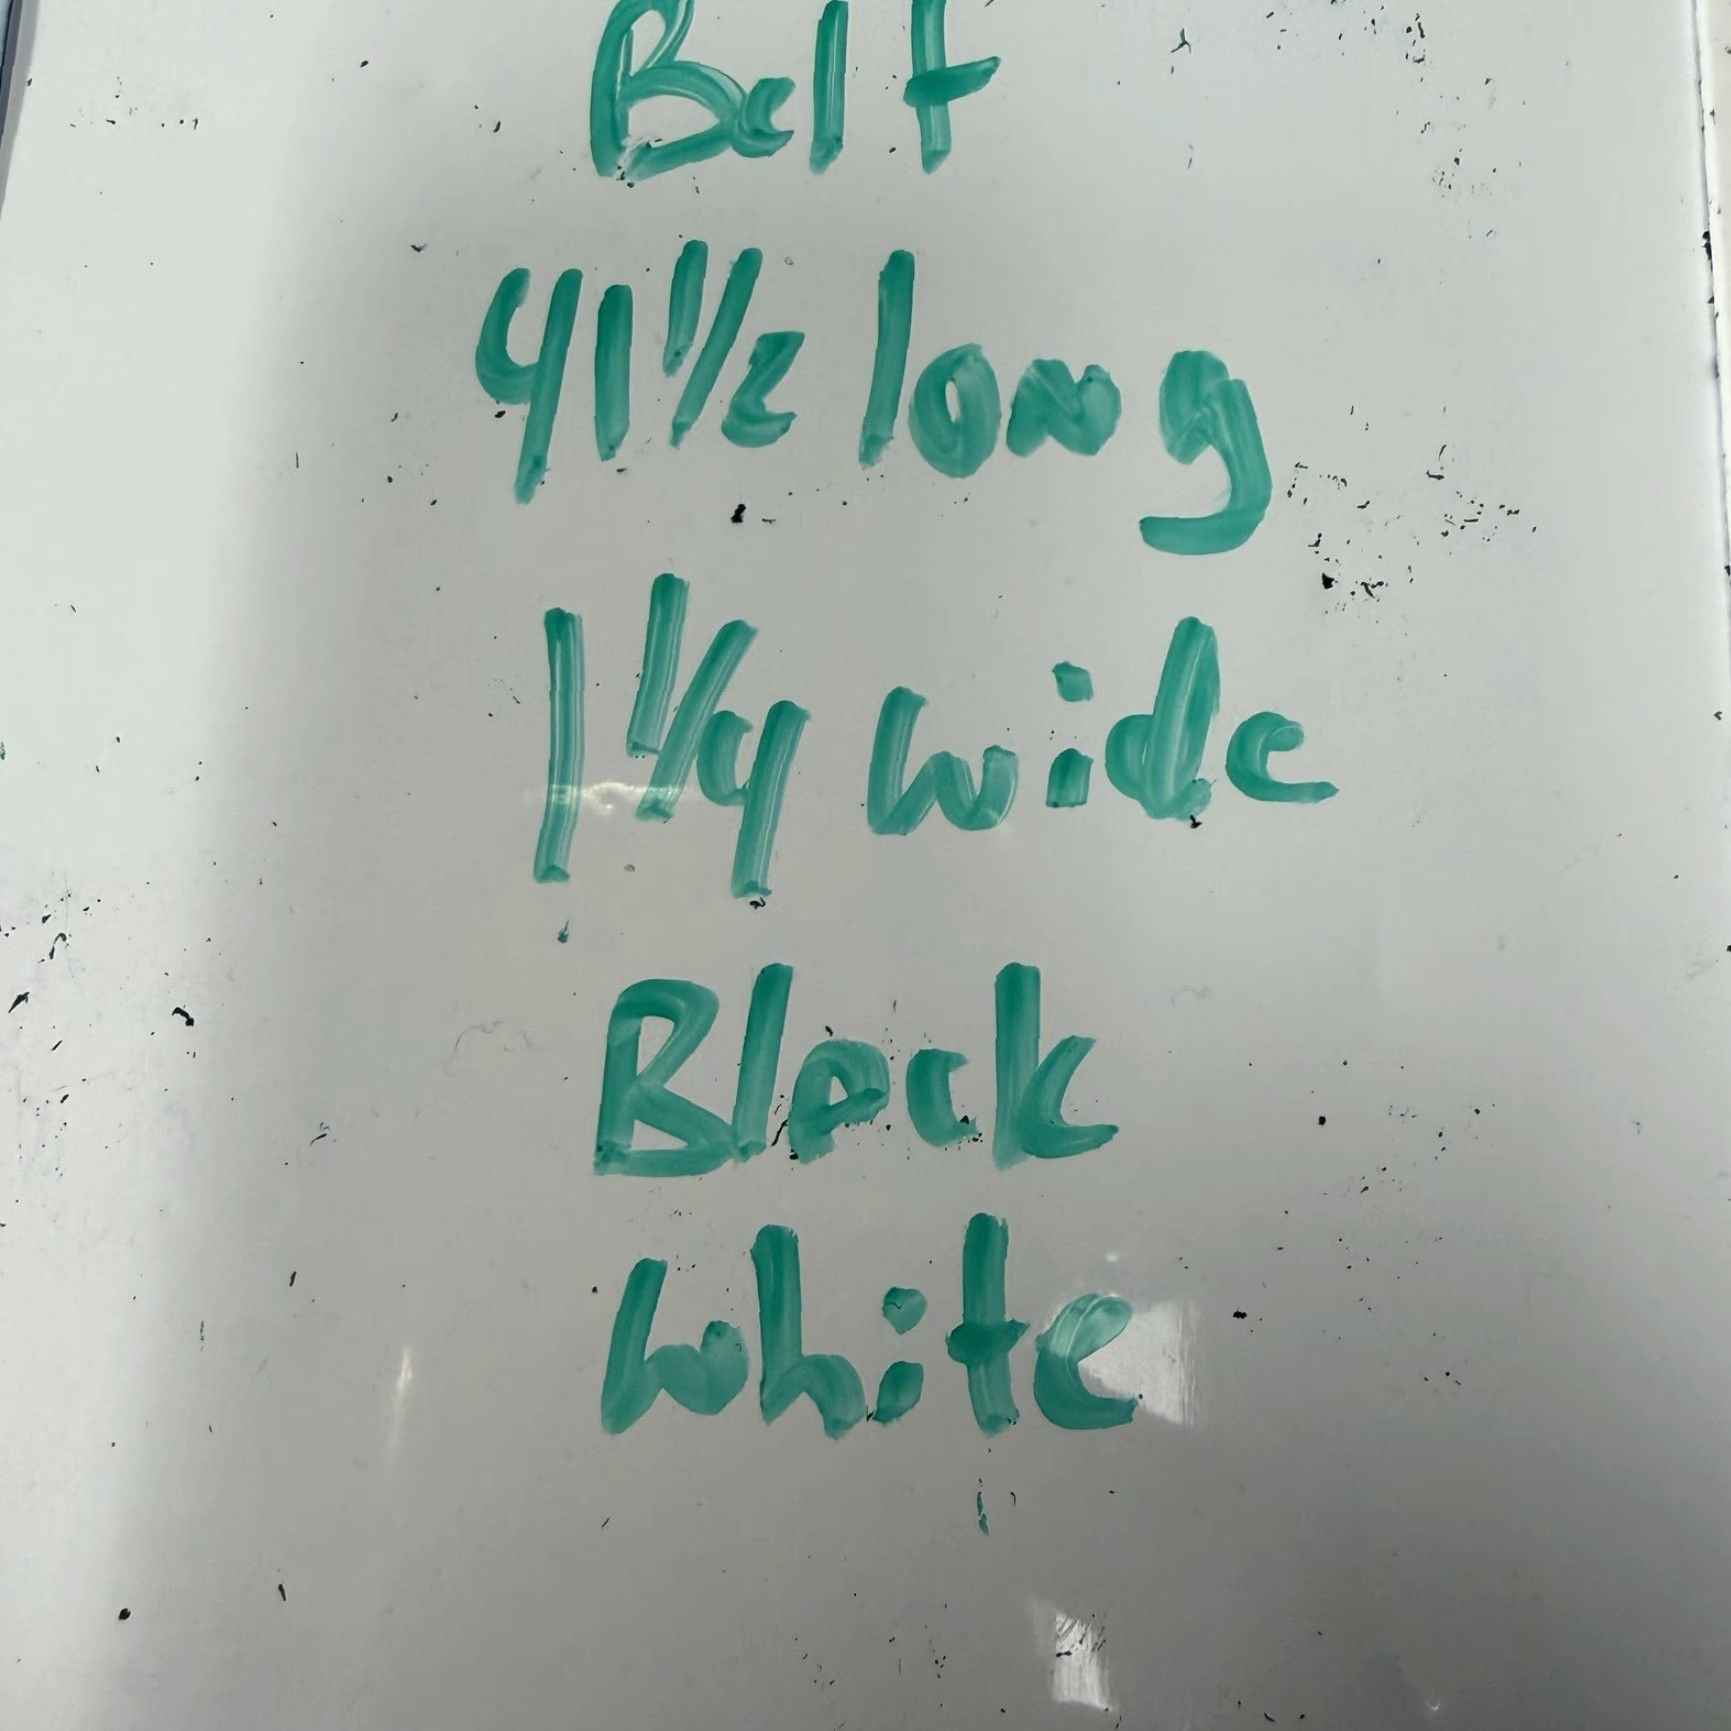 Belt
41 1/2 long
1 1/4 wide
Black
white